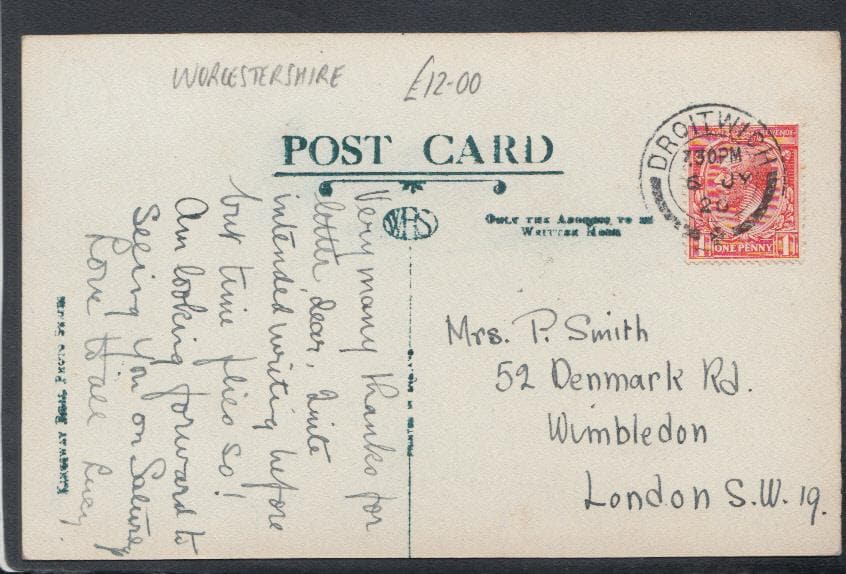 WORCESTERSHIRE £12-00
POST CARD
WHS
ONLY THE ADDRESS TO BE
WRITTEN HERE
DROITWICH
7.30PM
6 JY
20
ONE PENNY
Very many thanks for
letter, dear, Quite
intended writing before
but time flies so!
Am looking forward to
Seeing you on Saturday
Love to all Lucy.
KINGSWAY REAL PHOTO SERIES
PRINTED IN ENGLAND
Mrs. P. Smith
52 Denmark Rd.
Wimbledon
London S.W. 19.